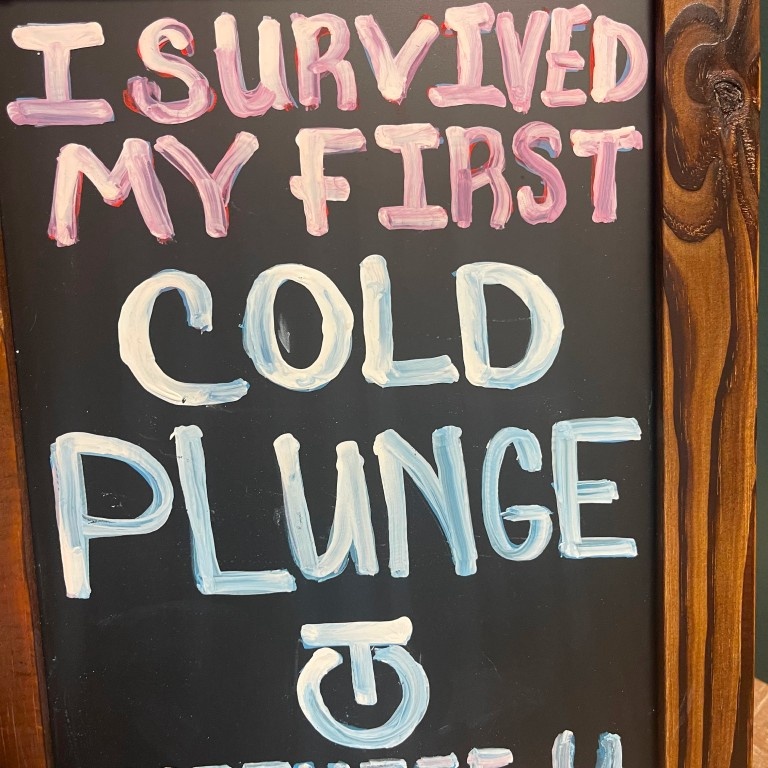 I SURVIVED
MY FIRST
COLD
PLUNGE